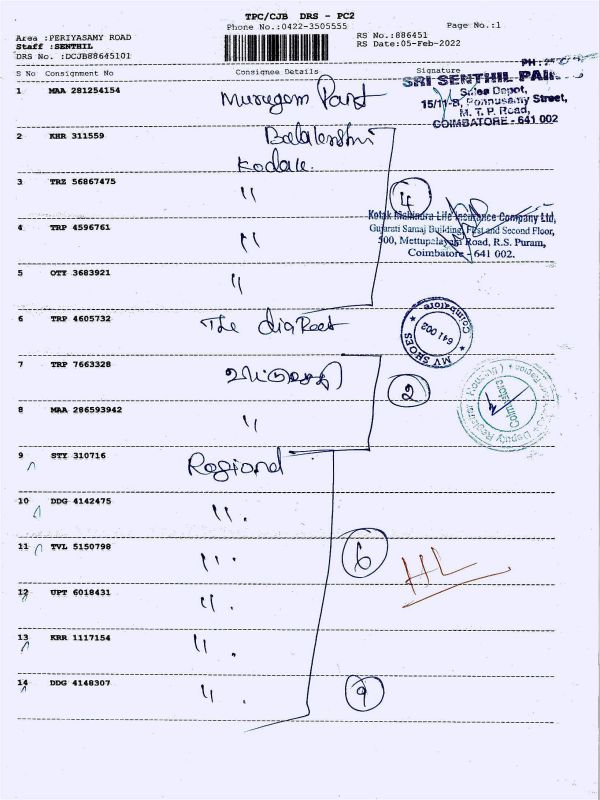 TPC/CJB DRS - PC2
Phone No.:0422-3505555 Page No.:1
Area :PERIYASAMY ROAD RS No.:886451
Staff :SENTHIL RS Date:05-Feb-2022
DRS No. :DCJB88645101
S No Consignment No Consignee Details Signature
PH :
SRI SENTHIL
Sales Depot,
15/11-B, Ponnusamy Street,
M. T. P. Road,
COIMBATORE - 641 002
1 MAA 281254154 Murugan Paint
2 KHR 311559
3 TRZ 56867475 "
4
Kotak Mahindra Life Insurance Company Ltd,
Gujarati Samaj Building, First and Second Floor,
500, Mettupalayam Road, R.S. Puram,
Coimbatore - 641 002.
4 TRP 4596761 "
5 OTY 3683921 "
6 TRP 4605732 The
MV SHOES
Coimbatore
641 002
7 TRP 7663328
2
Deputy Registrar (Housing)
Coimbatore
8 MAA 286593942 "
9 STY 310716 Regional
10 DDG 4142475 ".
11 TVL 5150798 ".
6
HL
12 UPT 6018431 ".
13 KRR 1117154 ".
14 DDG 4148307 ".
9